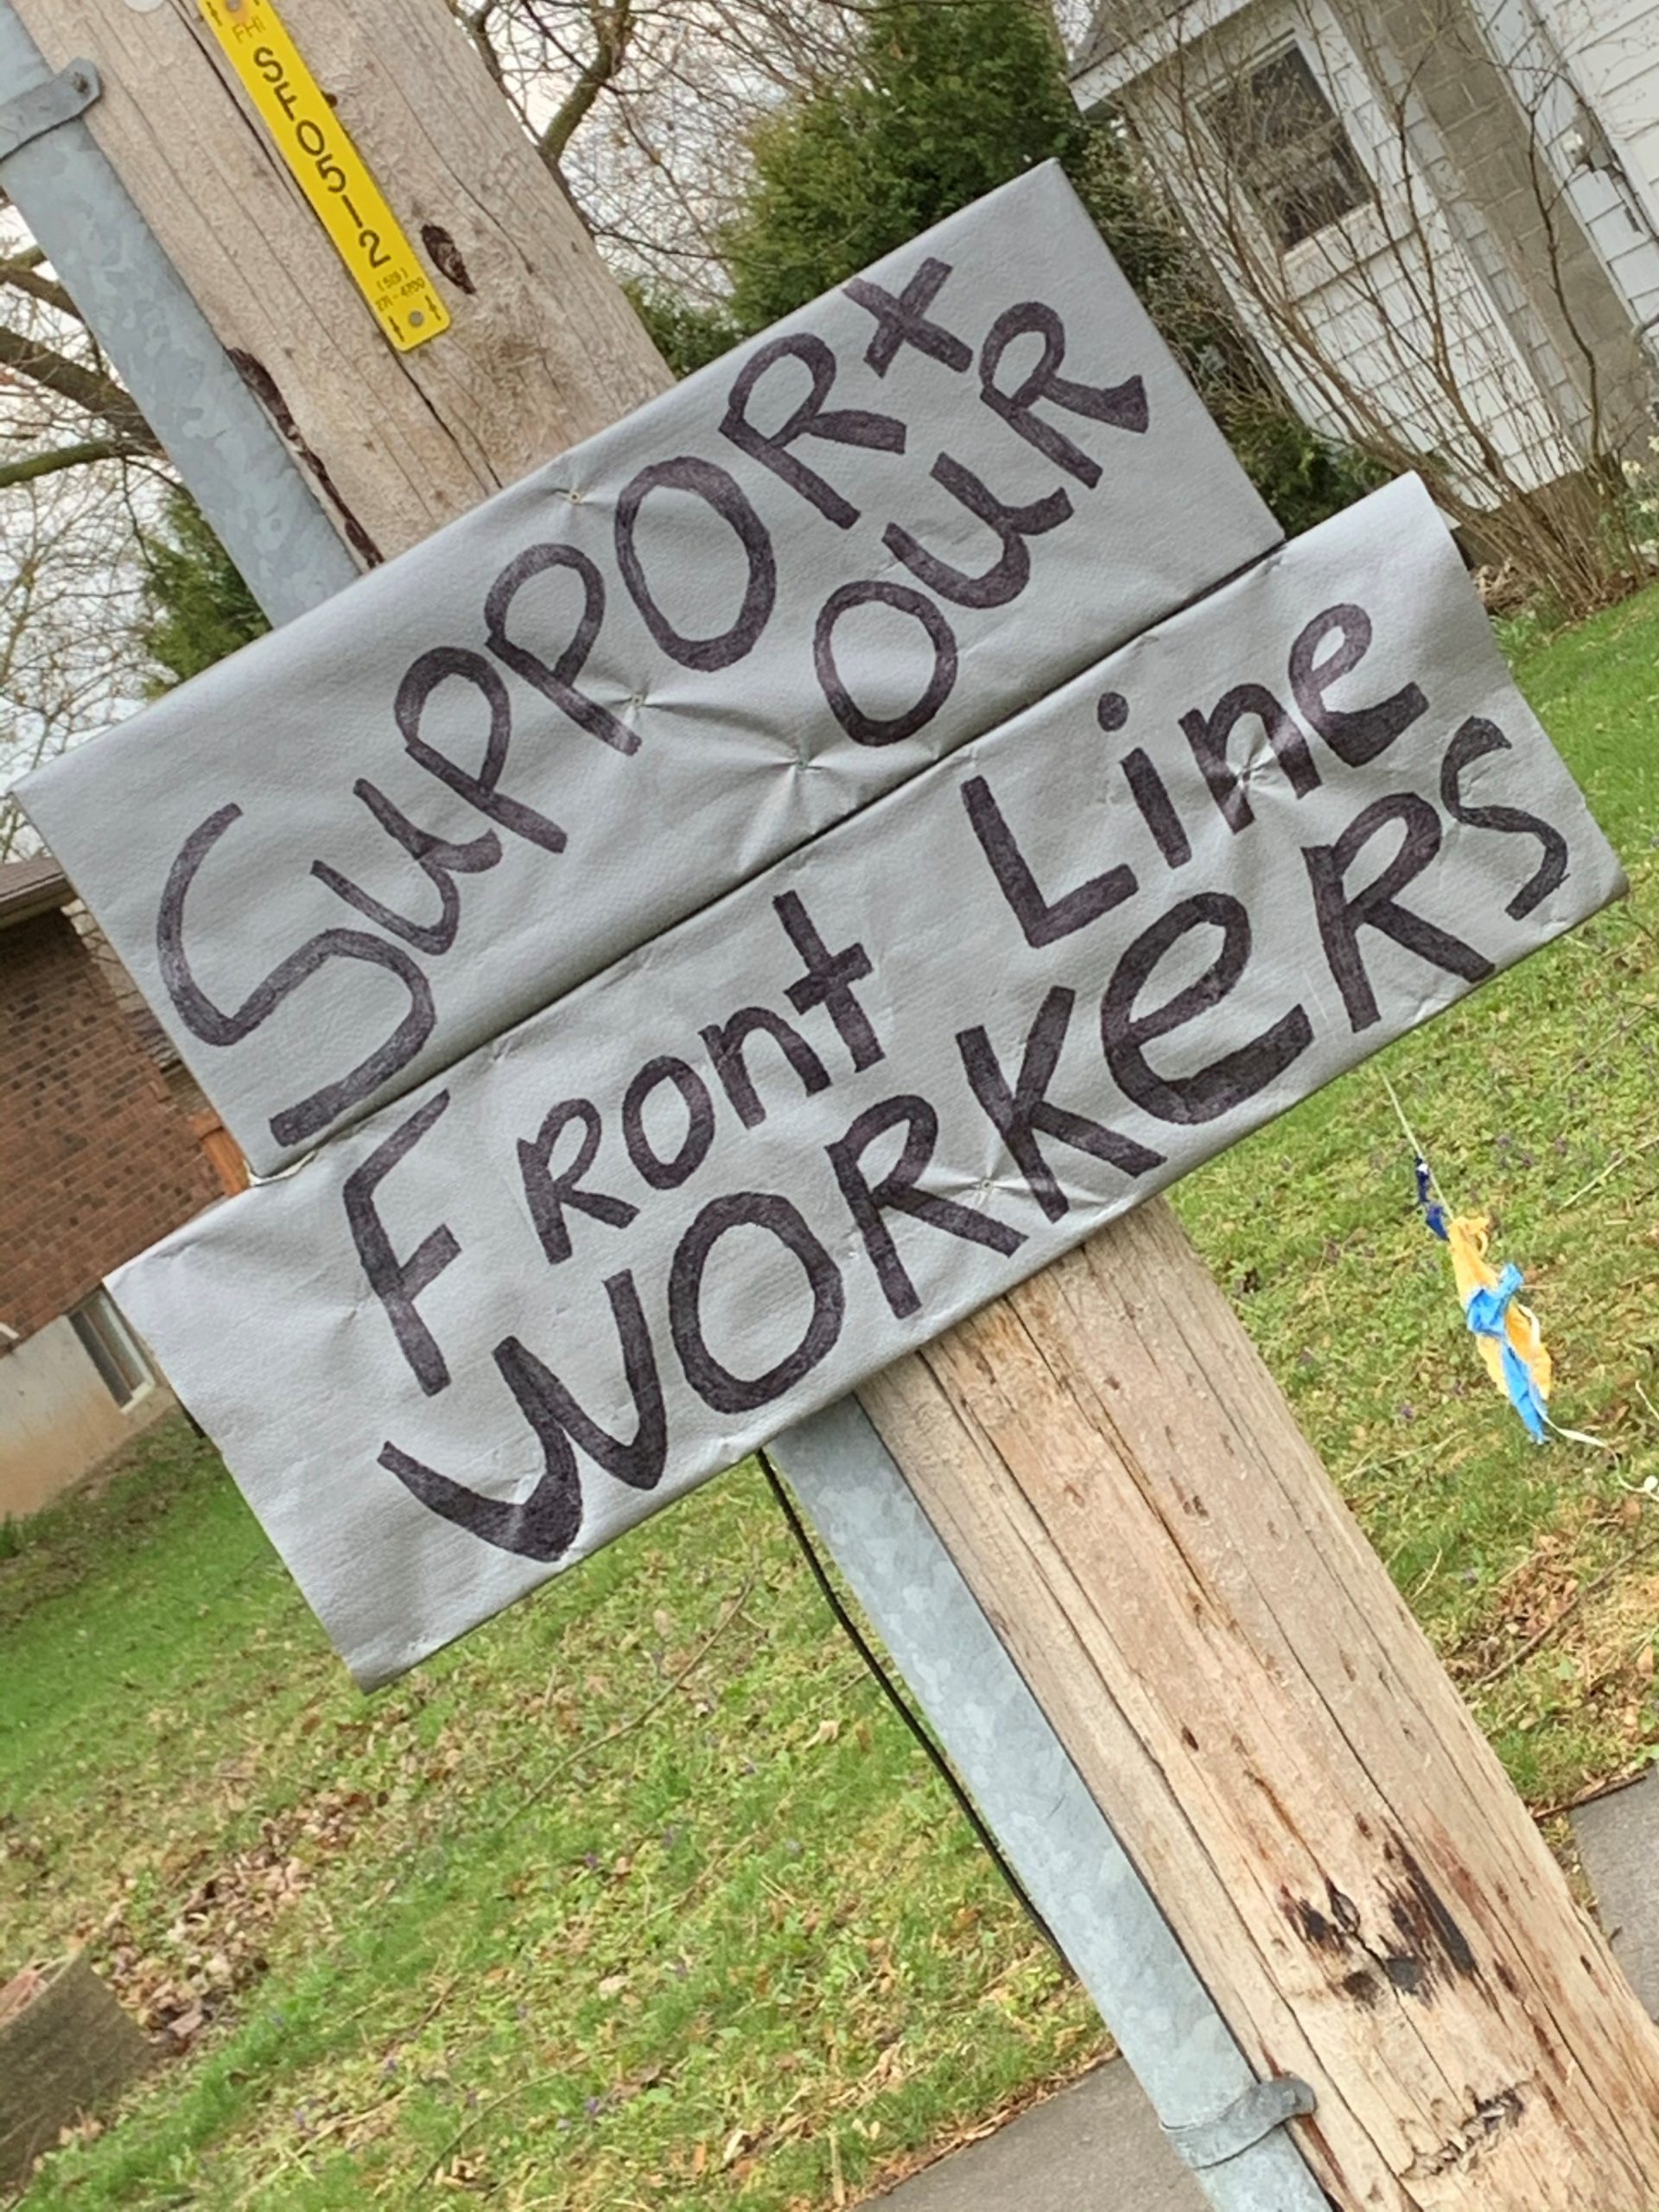 FHI
SF0512
(519)
271-4700
SuppORt
OuR
FROnt Line
WORKeRS